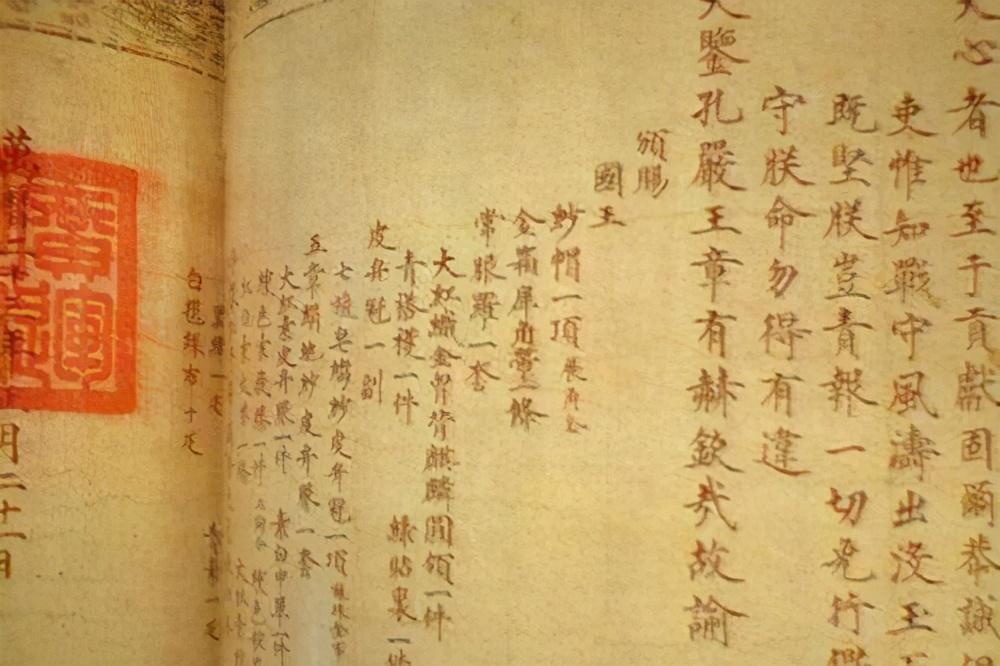 心者也至于貢獻固爾恭誠
吏惟知戰守風濤出沒玉
既堅朕豈責報一切免行
守朕命勿得有違
天鑒孔嚴王章有赫欽哉故諭
頒賜
國王
紗帽一頂 展角全
金箱犀角帶一條
常服羅一套
大紅織金胷背麒麟圓領一件
青褡𧞤一件 綠貼裏一件
皮弁冠一副
七旒皂皺紗皮弁冠一頂 旒珠金事
五章絹地紗皮弁服一套
大紅素皮弁服一件 素白中單一件
纁色素蔽膝一件
白氁絲布十疋
萬曆二十三年 月二十一日